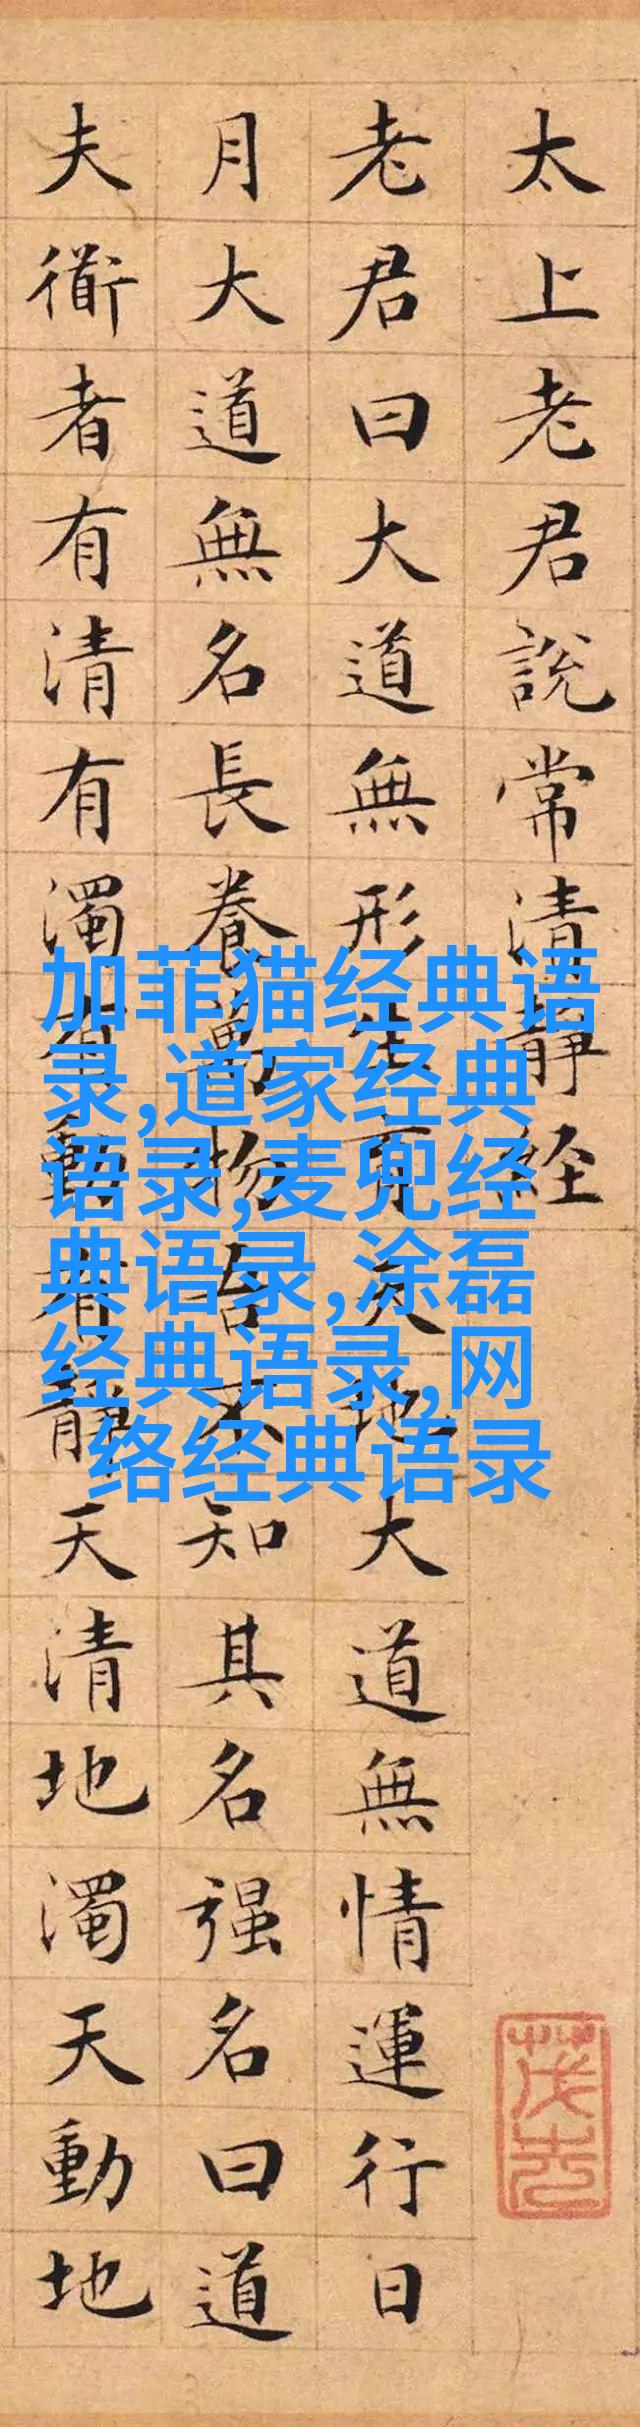 太上老君說常清靜経
老君曰大道無形生育天地大道無情運行日
月大道無名長養萬物吾不知其名强名曰道
夫衜者有清有濁有動有靜天清地濁天動地
加菲猫经典语
录,道家经典
语录,麦兜经
典语录,涂磊
经典语录,网
络经典语录